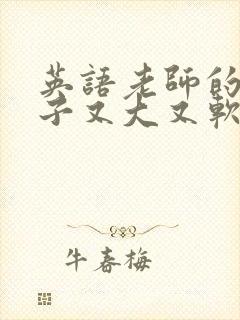 英語老師的
子又大又軟
牛春梅